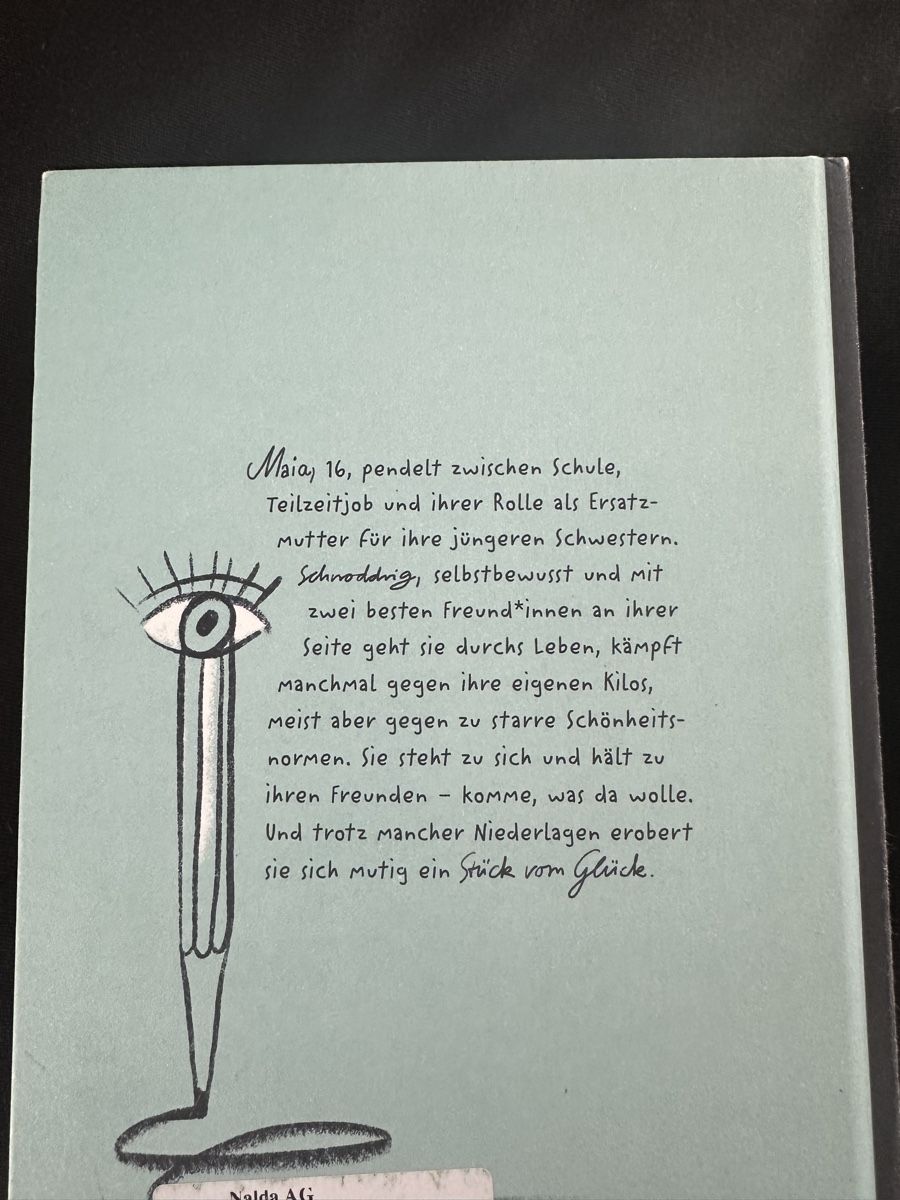 Maia, 16, pendelt zwischen Schule,
Teilzeitjob und ihrer Rolle als Ersatz-
mutter für ihre jüngeren Schwestern.
Schnoddrig, selbstbewusst und mit
zwei besten Freund*innen an ihrer
Seite geht sie durchs Leben, kämpft
manchmal gegen ihre eigenen Kilos,
meist aber gegen zu starre Schönheits-
normen. Sie steht zu sich und hält zu
ihren Freunden – komme, was da wolle.
Und trotz mancher Niederlagen erobert
sie sich mutig ein Stück vom Glück.
Nalda AG